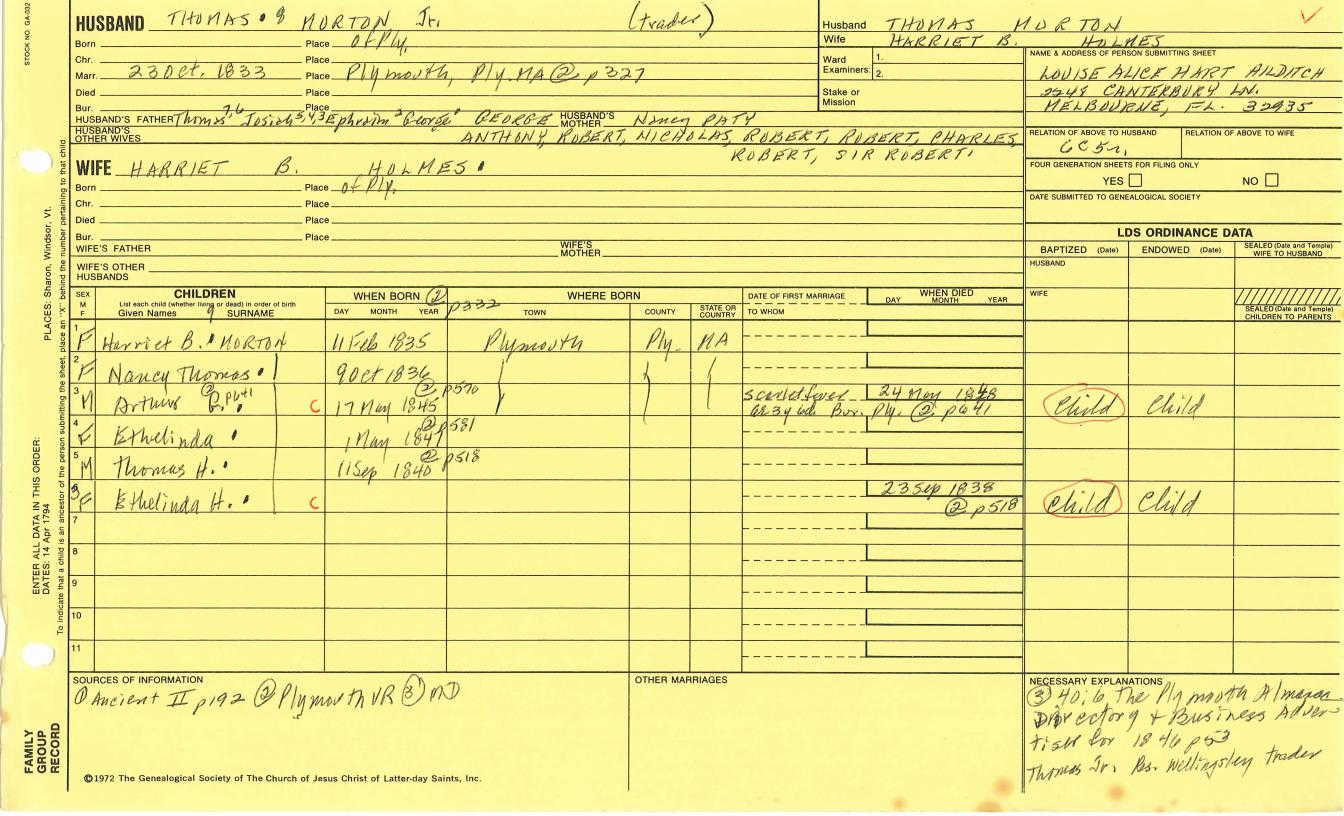 STOCK NO. GA-032
HUSBAND THOMAS 8 MORTON Jr. (trader)
Born Place of Ply.
Chr. Place
Marr. 23 Oct. 1833 Place Plymouth, Ply. MA ② p327
Died Place
Bur. Place
HUSBAND'S FATHER Thomas 7,6 Josiah 5,4,3 Ephraim 2 George 1 GEORGE HUSBAND'S MOTHER Nancy PATY
HUSBAND'S OTHER WIVES ANTHONY, ROBERT, NICHOLAS, ROBERT, ROBERT, CHARLES,
ROBERT, SIR ROBERT.
WIFE HARRIET B. HOLMES
Born Place of Ply.
Chr. Place
Died Place
Bur. Place
WIFE'S FATHER WIFE'S MOTHER
WIFE'S OTHER HUSBANDS
Husband THOMAS MORTON
Wife HARRIET B. HOLMES
Ward Examiners: 1.
2.
Stake or Mission
NAME & ADDRESS OF PERSON SUBMITTING SHEET
LOUISE ALICE HART AILDITCH
2248 CANTERBURY LN.
MELBOURNE, FL. 32935
RELATION OF ABOVE TO HUSBAND RELATION OF ABOVE TO WIFE
6C5r.
FOUR GENERATION SHEETS FOR FILING ONLY
YES NO
DATE SUBMITTED TO GENEALOGICAL SOCIETY
LDS ORDINANCE DATA
BAPTIZED (Date) ENDOWED (Date) SEALED (Date and Temple) WIFE TO HUSBAND
HUSBAND
WIFE
SEALED (Date and Temple) CHILDREN TO PARENTS
SEX M F CHILDREN List each child (whether living or dead) in order of birth Given Names 9 SURNAME
WHEN BORN ② p332 DAY MONTH YEAR
WHERE BORN TOWN COUNTY STATE OR COUNTRY
DATE OF FIRST MARRIAGE TO WHOM
WHEN DIED DAY MONTH YEAR
1 F Harriet B. MORTON 11 Feb 1835 Plymouth Ply. MA
2 F Nancy Thomas 9 Oct 1836
3 M Arthur ② p641 C 17 May 1845 ② p570 scarlet fever 24 May 1848 Child Child
ae 3y wd. Bur. Ply. ② p641
4 F Ethelinda 1 May 1847 ② p581
5 M Thomas H. 11 Sep 1840 ② p518
6 F Ethelinda H. C 23 Sep 1838 ② p518 Child Child
7
8
9
10
11
SOURCES OF INFORMATION
① Ancient II p192 ② Plymouth VR ③ MD
OTHER MARRIAGES
NECESSARY EXPLANATIONS
③ 40:6 The Plymouth Almanac
Directory & Business Adver-
tiser for 1846 p53
Thomas Jr. Bs. Wellingsley trader
©1972 The Genealogical Society of The Church of Jesus Christ of Latter-day Saints, Inc.
FAMILY GROUP RECORD
ENTER ALL DATA IN THIS ORDER:
DATES: 14 Apr 1794
PLACES: Sharon, Windsor, Vt.
To indicate that a child is an ancestor of the person submitting the sheet, place an "X" behind the number pertaining to that child